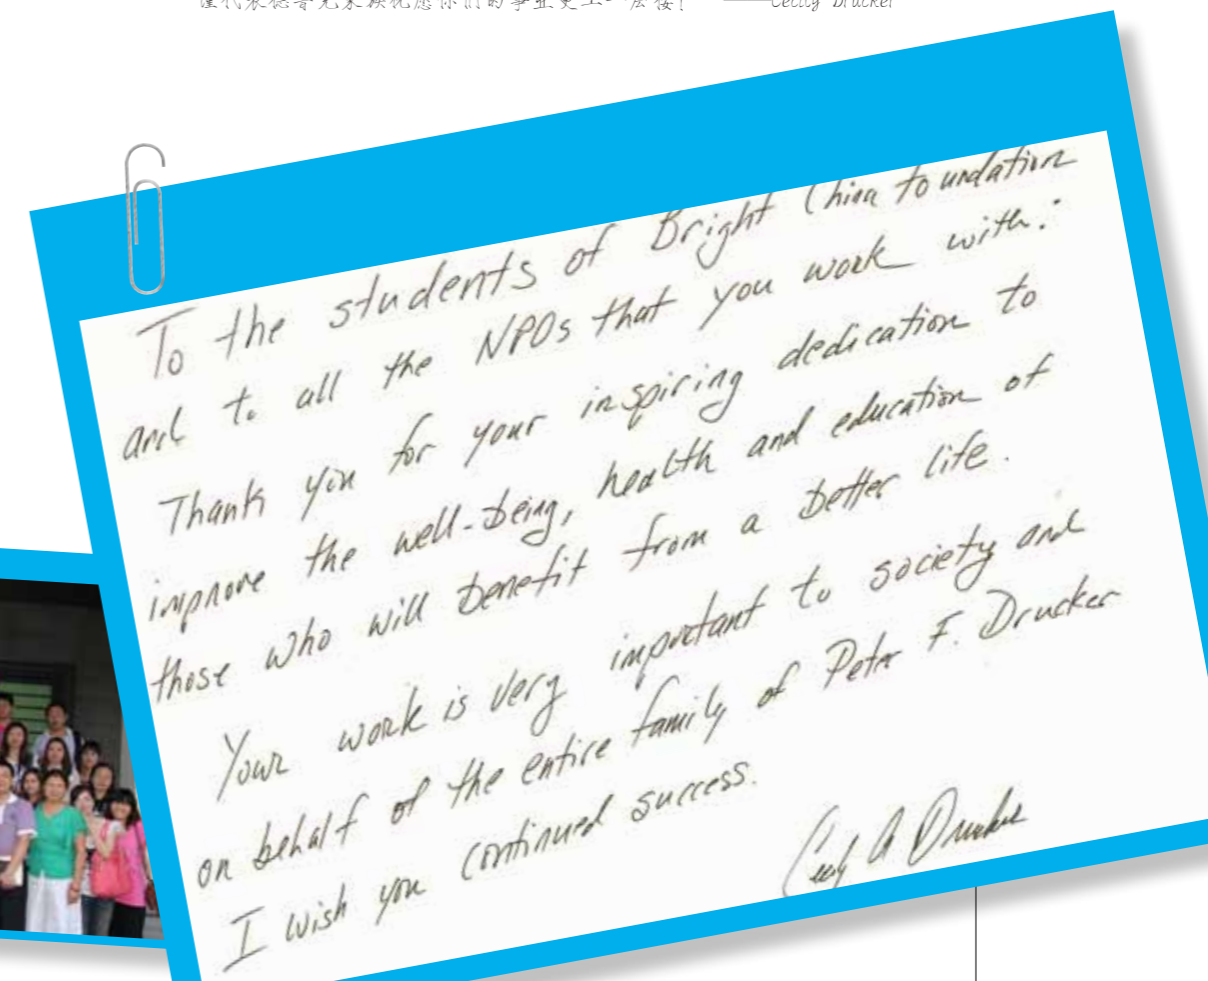 谨代表德鲁克家族祝愿你们的事业更上一层楼! ——Cecily Drucker
To the students of Bright China Foundation
and to all the NPOs that you work with:
Thank you for your inspiring dedication to
improve the well-being, health and education of
those who will benefit from a better life.
Your work is very important to society and
on behalf of the entire family of Peter F. Drucker
I wish you continued success.
Cecily A Drucker